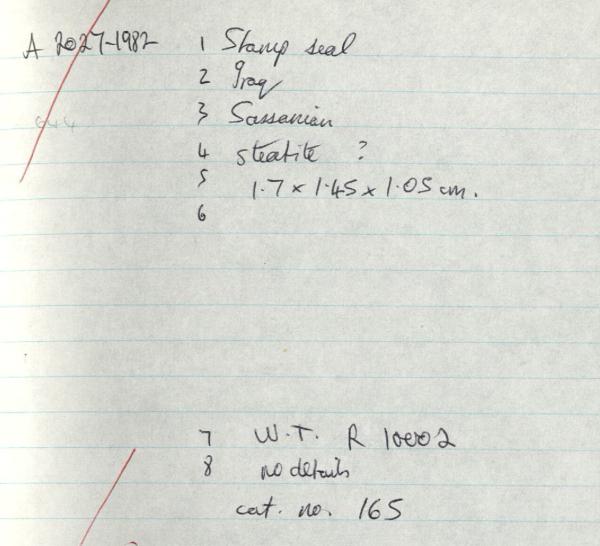 A 2027-1982 1 Stamp seal
2 Iraq
644
3 Sassanian
4 steatite ?
5 1.7 x 1.45 x 1.05 cm.
6
7 W.T. R 10002
8 no details
cat. no. 165